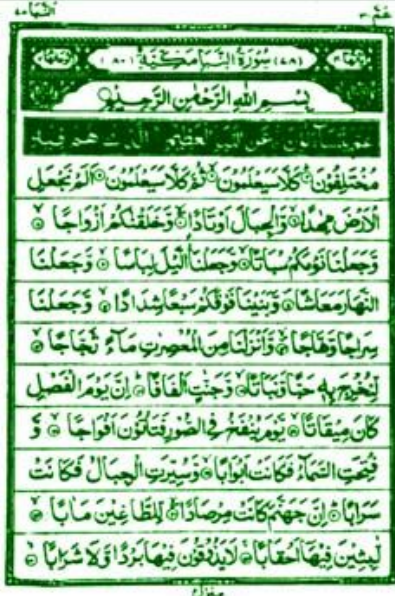 عم ٣٠
النبا ٧٨
(٧٨) سُوْرَةُ النَّبَاِ مَكِّيَّةٌ (٨٠)
بِسْمِ اللهِ الرَّحْمٰنِ الرَّحِيْمِ
عَمَّ يَتَسَآءَلُوْنَ عَنِ النَّبَاِ الْعَظِيْمِ الَّذِيْ هُمْ فِيْهِ
مُخْتَلِفُوْنَ كَلَّا سَيَعْلَمُوْنَ ثُمَّ كَلَّا سَيَعْلَمُوْنَ اَلَمْ نَجْعَلِ
الْاَرْضَ مِهٰدًا وَّالْجِبَالَ اَوْتَادًا وَّخَلَقْنٰكُمْ اَزْوَاجًا
وَّجَعَلْنَا نَوْمَكُمْ سُبَاتًا وَّجَعَلْنَا الَّيْلَ لِبَاسًا وَّجَعَلْنَا
النَّهَارَ مَعَاشًا وَّبَنَيْنَا فَوْقَكُمْ سَبْعًا شِدَادًا وَّجَعَلْنَا
سِرَاجًا وَّهَّاجًا وَّاَنْزَلْنَا مِنَ الْمُعْصِرٰتِ مَآءً ثَجَّاجًا
لِّنُخْرِجَ بِهٖ حَبًّا وَّنَبَاتًا وَّجَنّٰتٍ اَلْفَافًا اِنَّ يَوْمَ الْفَصْلِ
كَانَ مِيْقَاتًا يَّوْمَ يُنْفَخُ فِى الصُّوْرِ فَتَاْتُوْنَ اَفْوَاجًا وَّ
فُتِحَتِ السَّمَآءُ فَكَانَتْ اَبْوَابًا وَّسُيِّرَتِ الْجِبَالُ فَكَانَتْ
سَرَابًا اِنَّ جَهَنَّمَ كَانَتْ مِرْصَادًا لِّلطَّاغِيْنَ مَاٰبًا
لّٰبِثِيْنَ فِيْهَآ اَحْقَابًا لَا يَذُوْقُوْنَ فِيْهَا بَرْدًا وَّلَا شَرَابًا